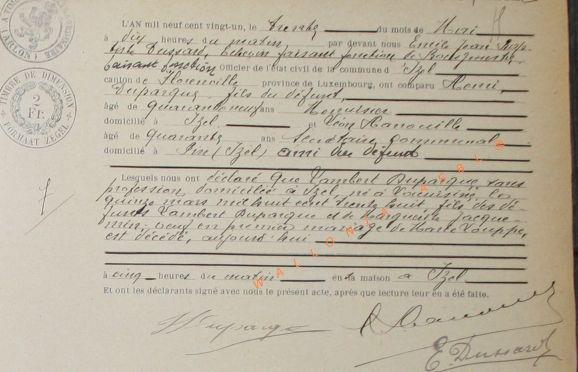 L'AN mil neuf cent vingt-un, le trente du mois de Mai
à dix heures du matin, par devant nous Emile Jean Bap-
tiste Dussard, Echevin faisant fonction de Bourgmestre
faisant fonction Officier de l'état civil de la commune d' Izel
canton de Florenville, province de Luxembourg, ont comparu Henri
Dupargue, fils du défunt
âgé de quarante ans Menuisier
domicilié à Izel et Léon
âgé de quarante ans Secrétaire communal
domicilié à Pin (Izel) ami du défunt
Lesquels nous ont déclaré que Lambert Dupargue, sans
profession, domicilié à Izel, né à le
quinze mars mil huit cent trente huit, fils des dé-
funts Lambert Dupargue et de Marguerite Jacque-
min, veuf en premier mariage de Marie
est décédé, aujourd'hui
à cinq heures du matin en sa maison à Izel
Et ont les déclarants signé avec nous le présent acte, après que lecture leur en a été faite.
H Dupargue
E. Dussard
TIMBRE DE DIMENSION
2 FR.
FORMAAT ZEGEL
(ARLON)
WALLONIA ASBL